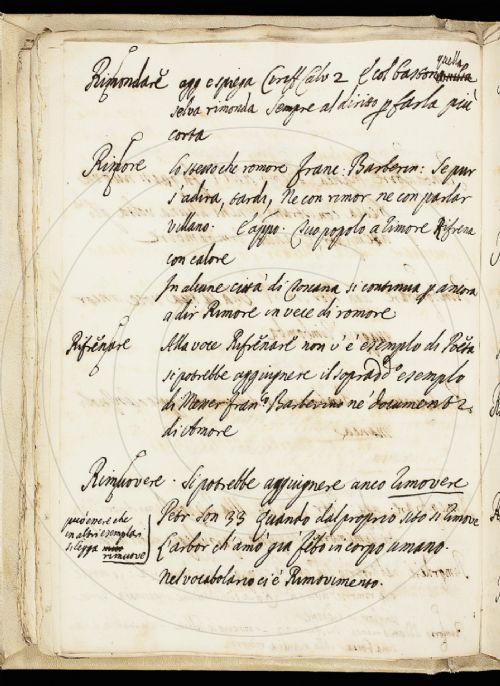 Rimondare agg e spiega Ciriff Calv 2 E col bastone quella
selva rimonda sempre al diritto p farla più
corta
Rimore Lo stesso che romore Franc: Barberin: se pur
s'adira, tardi, Ne con rimor ne con parlar
villano. E appo. Suo popolo a timore Rifrena
con calore
In alcune città di Toscana si continua p ancora
a dir Rimore in vece di romore
Rifrenare Alla voce Rifrenare non v'è esempio di Poeta
si potrebbe aggiugnere il sopradd.º esempio
di Messer Fran.º Barberino ne' documenti
di Amore
Rimuovere. Si potrebbe aggiugnere anco Rimovere
Petr Son 33 Quando dal proprio sito si rimove
L'arbor ch'amò già Febo in corpo umano.
Nel vocabolario ci è Rimovimento.
può essere che
in altri esemplar
si legga
rimuove